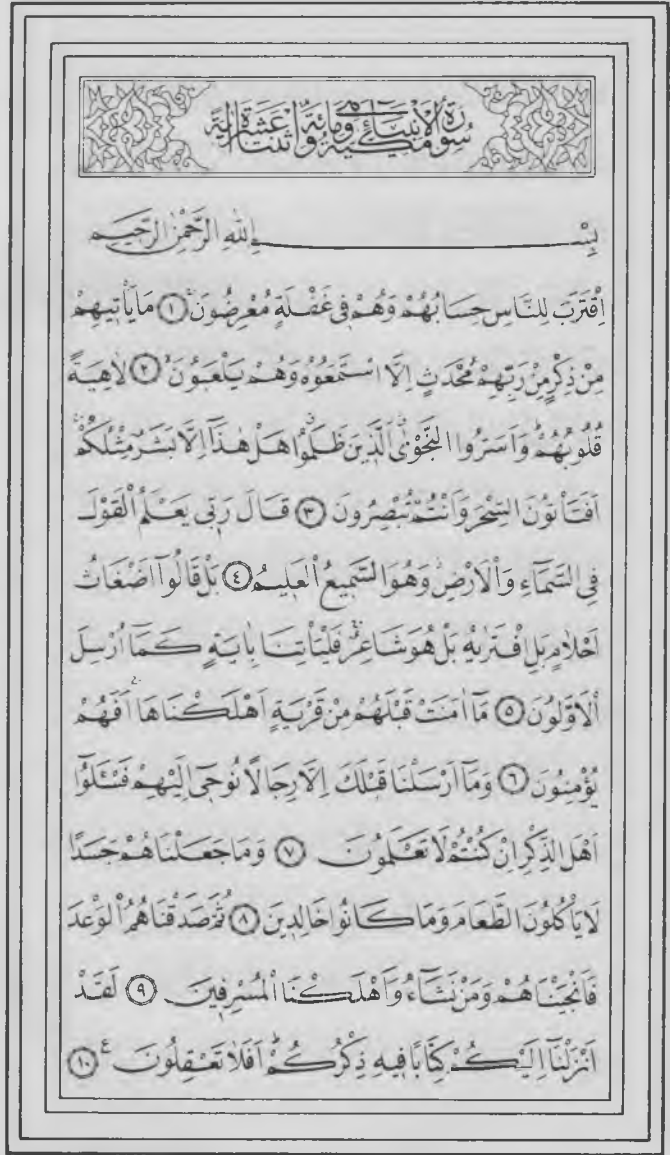 سُورَةُ الْاَنْبِيَاءِ مَكِّيَّةٌ وَهِيَ مِائَةٌ وَاثْنَتَا عَشْرَةَ اٰيَةً
بِسْــــــــــــمِ اللهِ الرَّحْمٰنِ الرَّحِيـمِ
اِقْتَرَبَ لِلنَّاسِ حِسَابُهُمْ وَهُمْ فِى غَفْلَةٍ مُعْرِضُونَۚ ﴿١﴾ مَا يَأْتِيهِمْ
مِنْ ذِكْرٍ مِنْ رَبِّهِمْ مُحْدَثٍ اِلَّا اسْتَمَعُوهُ وَهُمْ يَلْعَبُونَۙ ﴿٢﴾ لَاهِيَةً
قُلُوبُهُمْۜ وَاَسَرُّوا النَّجْوٰىۗ اَلَّذِينَ ظَلَمُواۗ هَلْ هٰذَٓا اِلَّا بَشَرٌ مِثْلُكُمْۚ
اَفَتَأْتُونَ السِّحْرَ وَاَنْتُمْ تُبْصِرُونَ ﴿٣﴾ قَالَ رَبِّى يَعْلَمُ الْقَوْلَ
فِى السَّمَٓاءِ وَالْاَرْضِۘ وَهُوَ السَّمِيعُ الْعَلِيمُ ﴿٤﴾ بَلْ قَالُٓوا اَضْغَاثُ
اَحْلَامٍ بَلِ افْتَرٰيهُ بَلْ هُوَ شَاعِرٌۚ فَلْيَأْتِنَا بِاٰيَةٍ كَمَٓا اُرْسِلَ
الْاَوَّلُونَ ﴿٥﴾ مَٓا اٰمَنَتْ قَبْلَهُمْ مِنْ قَرْيَةٍ اَهْلَكْنَاهَاۚ اَفَهُمْ
يُؤْمِنُونَ ﴿٦﴾ وَمَٓا اَرْسَلْنَا قَبْلَكَ اِلَّا رِجَالًا نُوحِٓى اِلَيْهِمْ فَسْـَٔلُٓوا
اَهْلَ الذِّكْرِ اِنْ كُنْتُمْ لَا تَعْلَمُونَ ﴿٧﴾ وَمَا جَعَلْنَاهُمْ جَسَدًا
لَا يَأْكُلُونَ الطَّعَامَ وَمَا كَانُوا خَالِدِينَ ﴿٨﴾ ثُمَّ صَدَقْنَاهُمُ الْوَعْدَ
فَاَنْجَيْنَاهُمْ وَمَنْ نَشَٓاءُ وَاَهْلَكْنَا الْمُسْرِفِينَ ﴿٩﴾ لَقَدْ
اَنْزَلْنَٓا اِلَيْكُمْ كِتَابًا فِيهِ ذِكْرُكُمْۜ اَفَلَا تَعْقِلُونَ ع ﴿١٠﴾